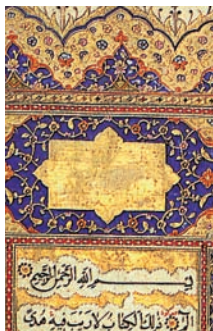 بسم الله الرحمن الرحيم
الم ذلك الكتاب لا ريب فيه هدى